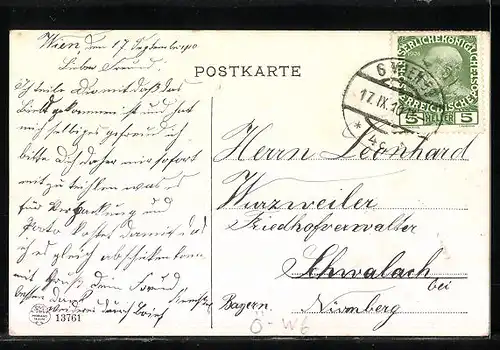 Wien, den 17 September 910
Lieber Freund!
Ich teile Dir mit daß das
Bild gekommen ist und hat
mir selbiges gefreut ich
bitte Dich daher mir sofort
mit zu teihlen was es
für Verpackung und
Porto kostet damit
ich es gleich abschicken kann
mit Gruß Dein Freund
besten Dank
durch Brief
13761
POSTKARTE
KAISERLICHE KÖNIGLICHE
ÖSTERREICHISCHE POST
5 HELLER 5
6 WIEN
17.IX.10
Herrn Leonhard
Wurzweiler
Friedhofverwalter
Schwalach
bei
Bayern. Nürnberg
Ö-W6